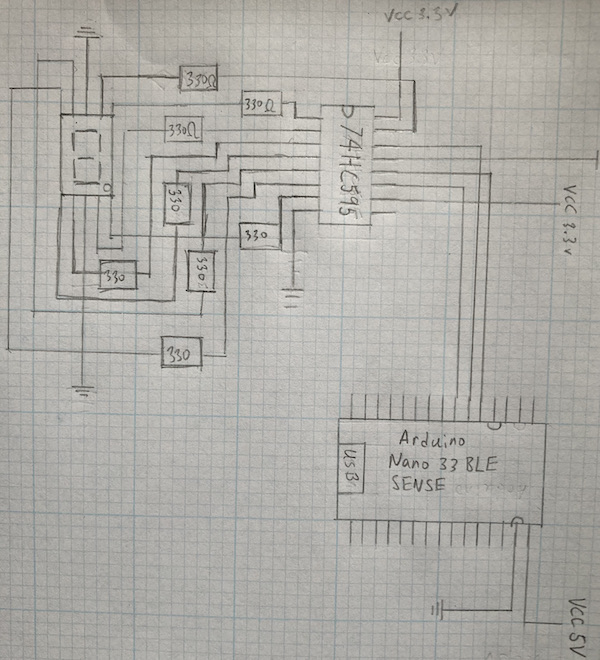 VCC 3.3V
330Ω
330Ω
330Ω
74HC595
330
VCC 3.3V
330
330
330
330
Arduino
Nano 33 BLE
SENSE
USB
VCC 5V